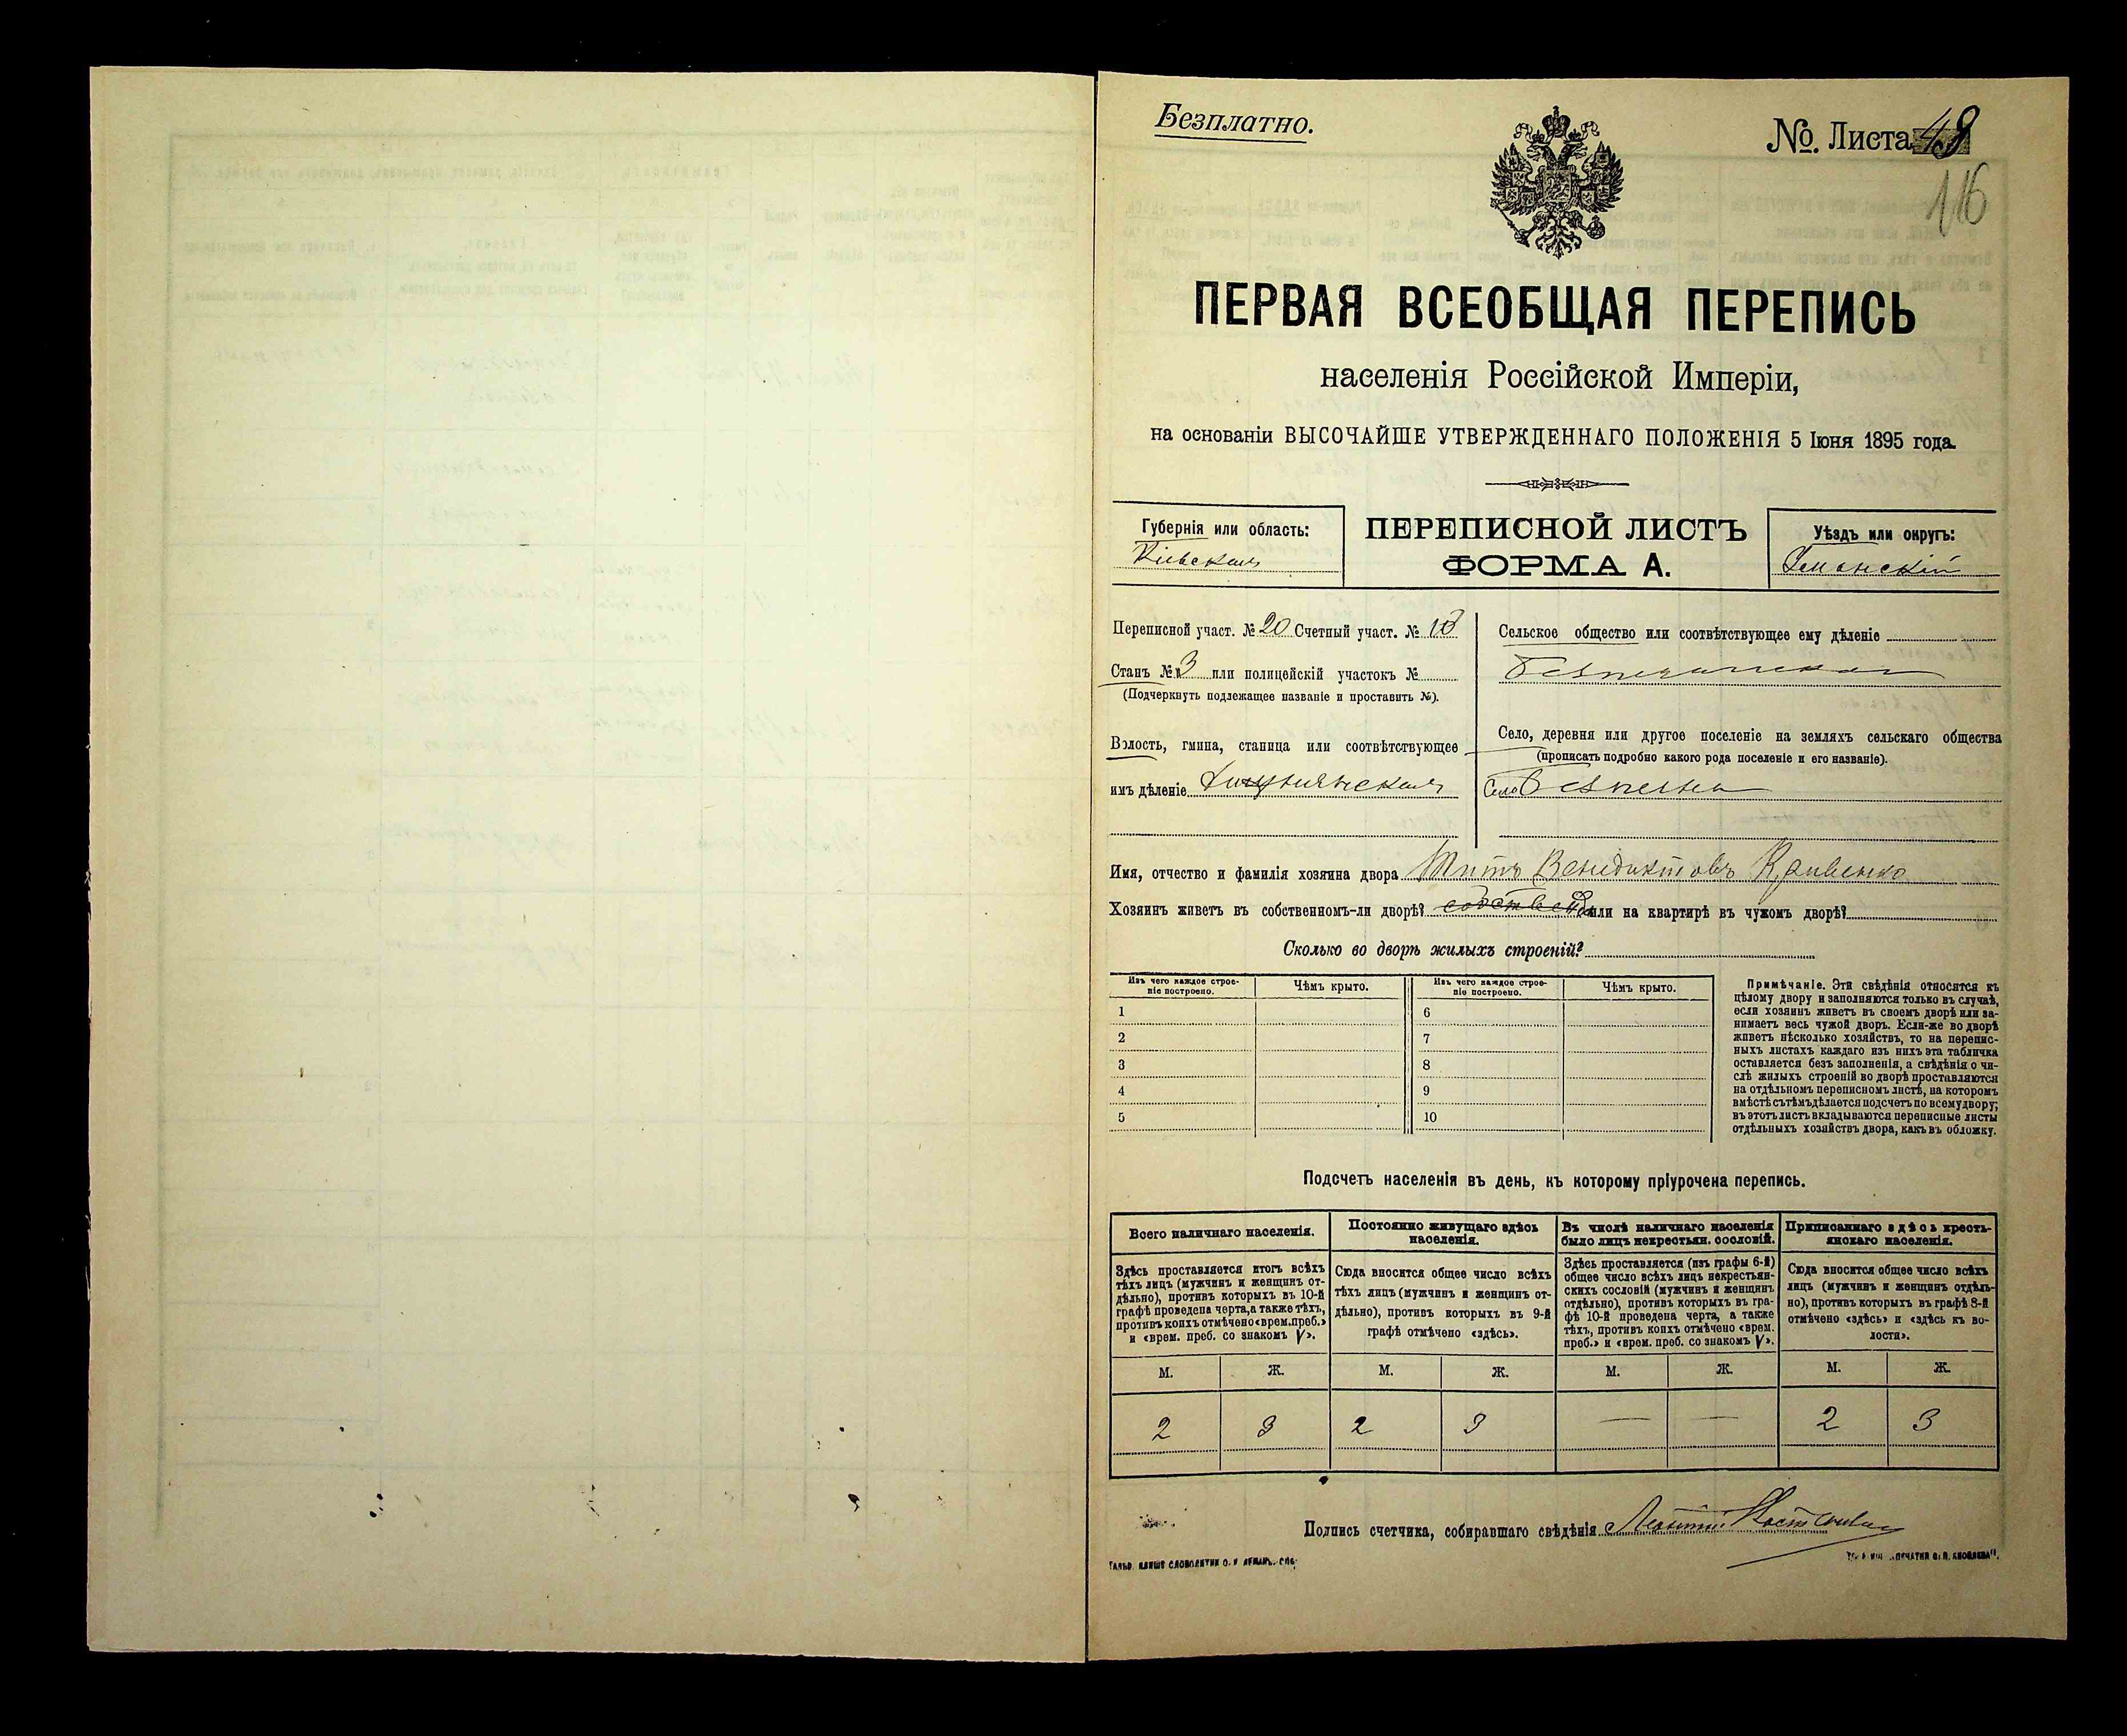 Безплатно.
№. Листа 48
116
ПЕРВАЯ ВСЕОБЩАЯ ПЕРЕПИСЬ
населенія Россійской Имперіи,
на основаніи ВЫСОЧАЙШЕ УТВЕРЖДЕННАГО ПОЛОЖЕНІЯ 5 Іюня 1895 года.
Губернія или область:
Кіевская
ПЕРЕПИСНОЙ ЛИСТЪ
ФОРМА А.
Уѣздъ или округъ:
Уманскій
Переписной участ. № 20 Счетный участ. №
Станъ № 3 или полицейскій участокъ №
(Подчеркнуть подлежащее названіе и проставить №).
Волость, гмина, станица или соотвѣтствующее
имъ дѣленіе
Сельское общество или соотвѣтствующее ему дѣленіе
Село, деревня или другое поселеніе на земляхъ сельскаго общества
(прописать подробно какого рода поселеніе и его названіе).
Село
Имя, отчество и фамилія хозяина двора Титъ Венидиктовъ Кравенко
Хозяинъ живетъ въ собственномъ-ли дворѣ? или на квартирѣ въ чужомъ дворѣ?
Сколько во дворѣ жилыхъ строеній?
Изъ чего каждое строе-
ніе построено.
Чѣмъ крыто.
Изъ чего каждое строе-
ніе построено.
Чѣмъ крыто.
1 6
2 7
3 8
4 9
5 10
Примѣчаніе. Эти свѣдѣнія относятся къ
цѣлому двору и заполняются только въ случаѣ,
если хозяинъ живетъ въ своемъ дворѣ или за-
нимаетъ весь чужой дворъ. Если-же во дворѣ
живетъ нѣсколько хозяйствъ, то на перепис-
ныхъ листахъ каждаго изъ нихъ эта табличка
оставляется безъ заполненія, а свѣдѣнія о чи-
слѣ жилыхъ строеній во дворѣ проставляются
на отдѣльномъ переписномъ листѣ, на которомъ
вмѣстѣ съ тѣмъ дѣлается подсчетъ по всему двору;
въ этотъ листъ вкладываются переписные листы
отдѣльныхъ хозяйствъ двора, какъ въ обложку.
Подсчетъ населенія въ день, къ которому пріурочена перепись.
Всего наличнаго населенія.
Здѣсь проставляется итогъ всѣхъ
тѣхъ лицъ (мужчинъ и женщинъ от-
дѣльно), противъ которыхъ въ 10-й
графѣ проведена черта, а также тѣхъ,
противъ коихъ отмѣчено «врем. преб.»
и «врем. преб. со знакомъ V».
Постоянно живущаго здѣсь
населенія.
Сюда вносится общее число всѣхъ
тѣхъ лицъ (мужчинъ и женщинъ от-
дѣльно), противъ которыхъ въ 9-й
графѣ отмѣчено «здѣсь».
Въ числѣ наличнаго населенія
было лицъ некрестьян. сословій.
Здѣсь проставляется (изъ графы 6-й)
общее число всѣхъ лицъ некрестьян-
скихъ сословій (мужчинъ и женщинъ
отдѣльно), противъ которыхъ въ гра-
фѣ 10-й проведена черта, а также
тѣхъ, противъ коихъ отмѣчено «врем.
преб.» и «врем. преб. со знакомъ V».
Приписаннаго здѣсь кресть-
янскаго населенія.
Сюда вносится общее число всѣхъ
лицъ (мужчинъ и женщинъ отдѣль-
но), противъ которыхъ въ графѣ 8-й
отмѣчено «здѣсь» и «здѣсь къ во-
лости».
М. Ж. М. Ж. М. Ж. М. Ж.
2 3 2 3 — — 2 3
Подпись счетчика, собиравшаго свѣдѣнія